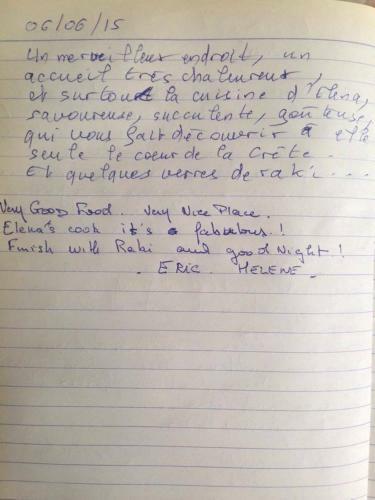 06/06/15
Un merveilleux endroit, un
accueil très chaleureux,
et surtout la cuisine d'Elena,
savoureuse, succulente, goûteuse,
qui vous fait découvrir à elle
seule le coeur de la Crête.
Et quelques verres de raki...
Very Good Food.. Very Nice Place.
Elena's cook it's fabulous!
Finish with Raki and good Night!
- ERIC. HELENE.